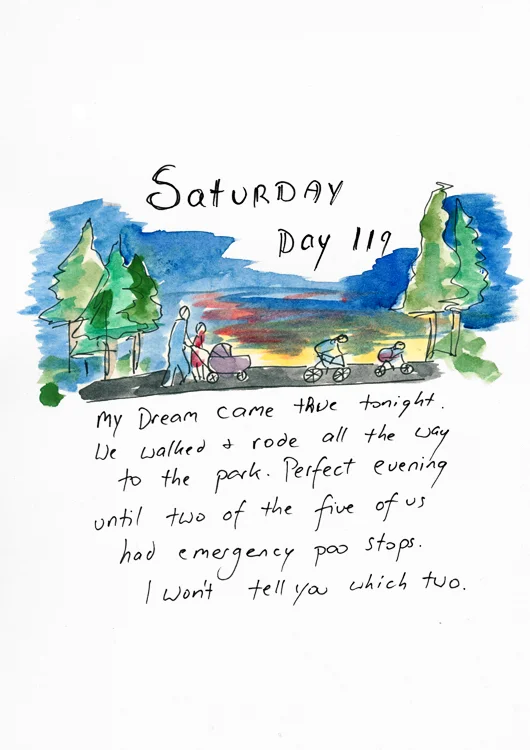 SATURDAY
Day 119
My Dream came true tonight.
We walked & rode all the way
to the park. Perfect evening
until two of the five of us
had emergency poo stops.
I won't tell you which two.